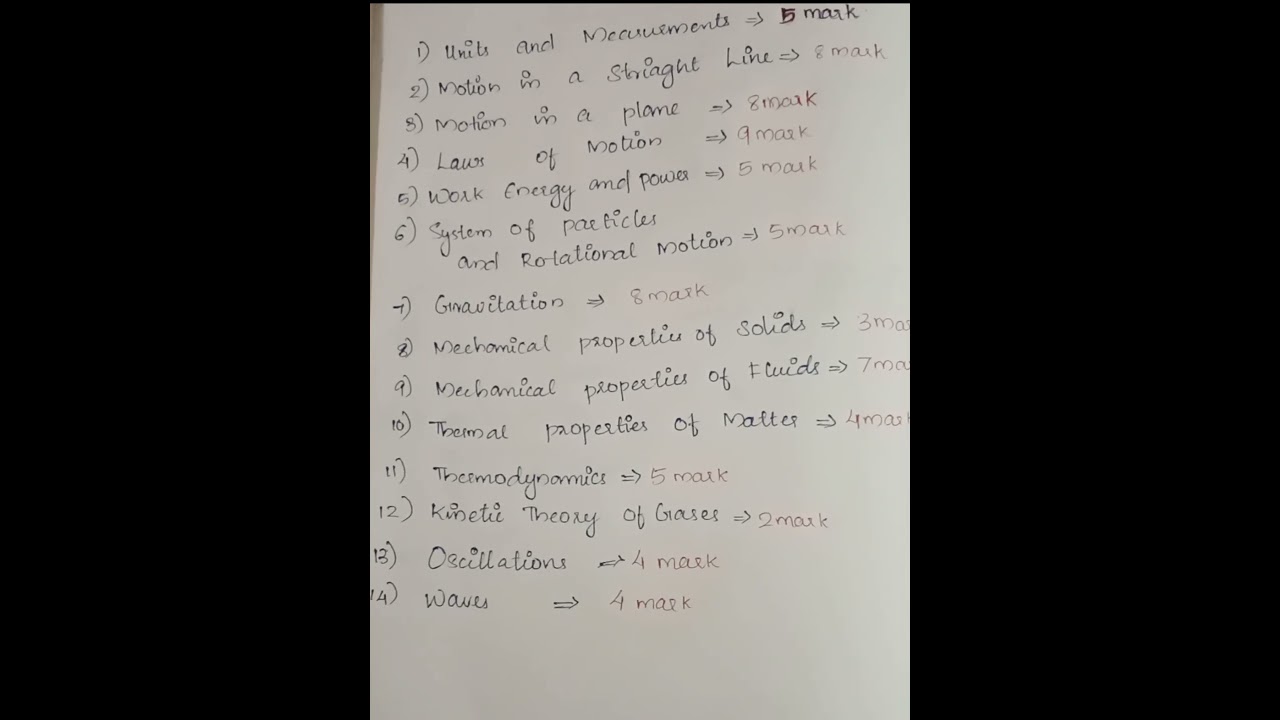 1) Units and Measurements ⇒ 5 mark
2) Motion in a Striaght Line ⇒ 8 mark
3) Motion in a plane ⇒ 8 mark
4) Laws of Motion ⇒ 9 mark
5) Work Energy and power ⇒ 5 mark
6) System of particles
and Rotational Motion ⇒ 5 mark
7) Gravitation ⇒ 8 mark
8) Mechanical properties of Solids ⇒ 3 mar
9) Mechanical properties of Fluids ⇒ 7 ma
10) Thermal properties of Matter ⇒ 4 mark
11) Thermodynamics ⇒ 5 mark
12) Kinetic Theory of Gases ⇒ 2 mark
13) Oscillations ⇒ 4 mark
14) Waves ⇒ 4 mark